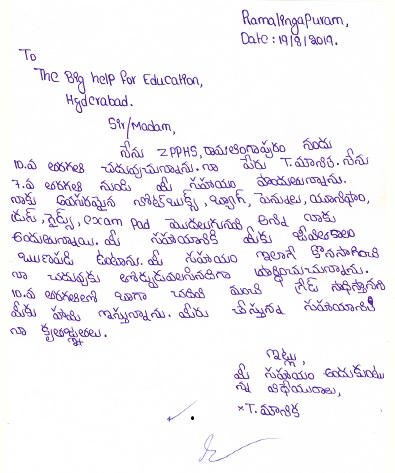 Ramalingapuram,
Date: 19/8/2019.
To
The Big help For Education,
Hyderabad.
Sir/Madam,
నేను ZPPHS, రామలింగాపురం నందు
10.వ తరగతి చదువుచున్నాను. నా పేరు T. మానిక. నేను
7.వ తరగతి నుండి మీ సహాయం పొందుతున్నాను.
నాకు అవసరమైన నోట్‌బుక్స్, బ్యాగ్, పెన్నులు, యూనిఫాం,
గైడ్స్, exam Pad మొదలగునవి అన్ని నాకు
అందుతున్నాయి. మీ సహాయానికి మీకు జీవితకాలం
ఋణపడి ఉంటాను. మీ సహాయం ఇలాగే కొనసాగించి
నా చదువుకు తోడ్పడవలసినదిగా
10.వ తరగతిలో బాగా చదివి మంచి గ్రేడ్ సాధిస్తానని
మీకు హామీ ఇస్తున్నాను. మీరు చేస్తున్న సహాయానికి
నా కృతజ్ఞతలు.
ఇట్లు,
మీ సహాయం అందుకుంటు
న్న విధేయురాలు,
×T. మానిక